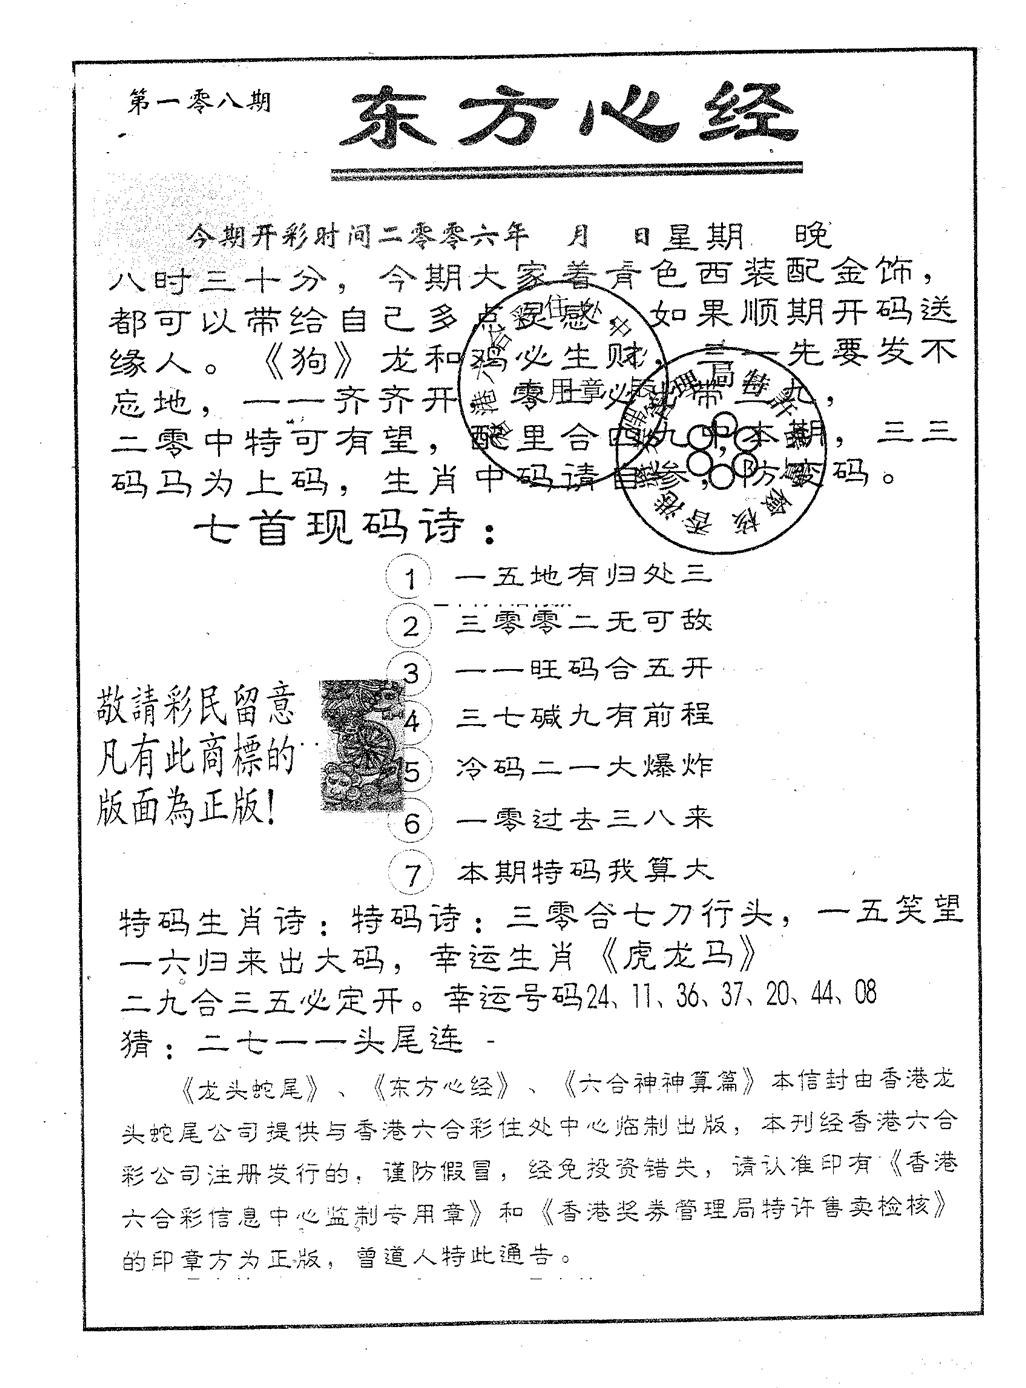 第一零八期
东方心经
今期开彩时间二零零六年 月 日星期 晚
八时三十分，今期大家着青色西装配金饰，
都可以带给自己多点灵感，如果顺期开码送
缘人。《狗》龙和鸡必生财，三一先要发不
忘地，一一齐齐开，零二必出带三九，
二零中特可有望，配里合四九中本期，三三
码马为上码，生肖中码请自参，防变码。
七首现码诗：
1 一五地有归处三
2 三零零二无可敌
3 一一旺码合五开
4 三七碱九有前程
5 冷码二一大爆炸
6 一零过去三八来
7 本期特码我算大
敬請彩民留意
凡有此商標的
版面為正版！
特码生肖诗：特码诗：三零合七刀行头，一五笑望
一六归来出大码，幸运生肖《虎龙马》
二九合三五必定开。幸运号码24、11、36、37、20、44、08
猜：二七一一头尾连
《龙头蛇尾》、《东方心经》、《六合神神算篇》本信封由香港龙
头蛇尾公司提供与香港六合彩住处中心临制出版，本刊经香港六合
彩公司注册发行的，谨防假冒，经免投资错失，请认准印有《香港
六合彩信息中心监制专用章》和《香港奖券管理局特许售卖检核》
的印章方为正版，曾道人特此通告。